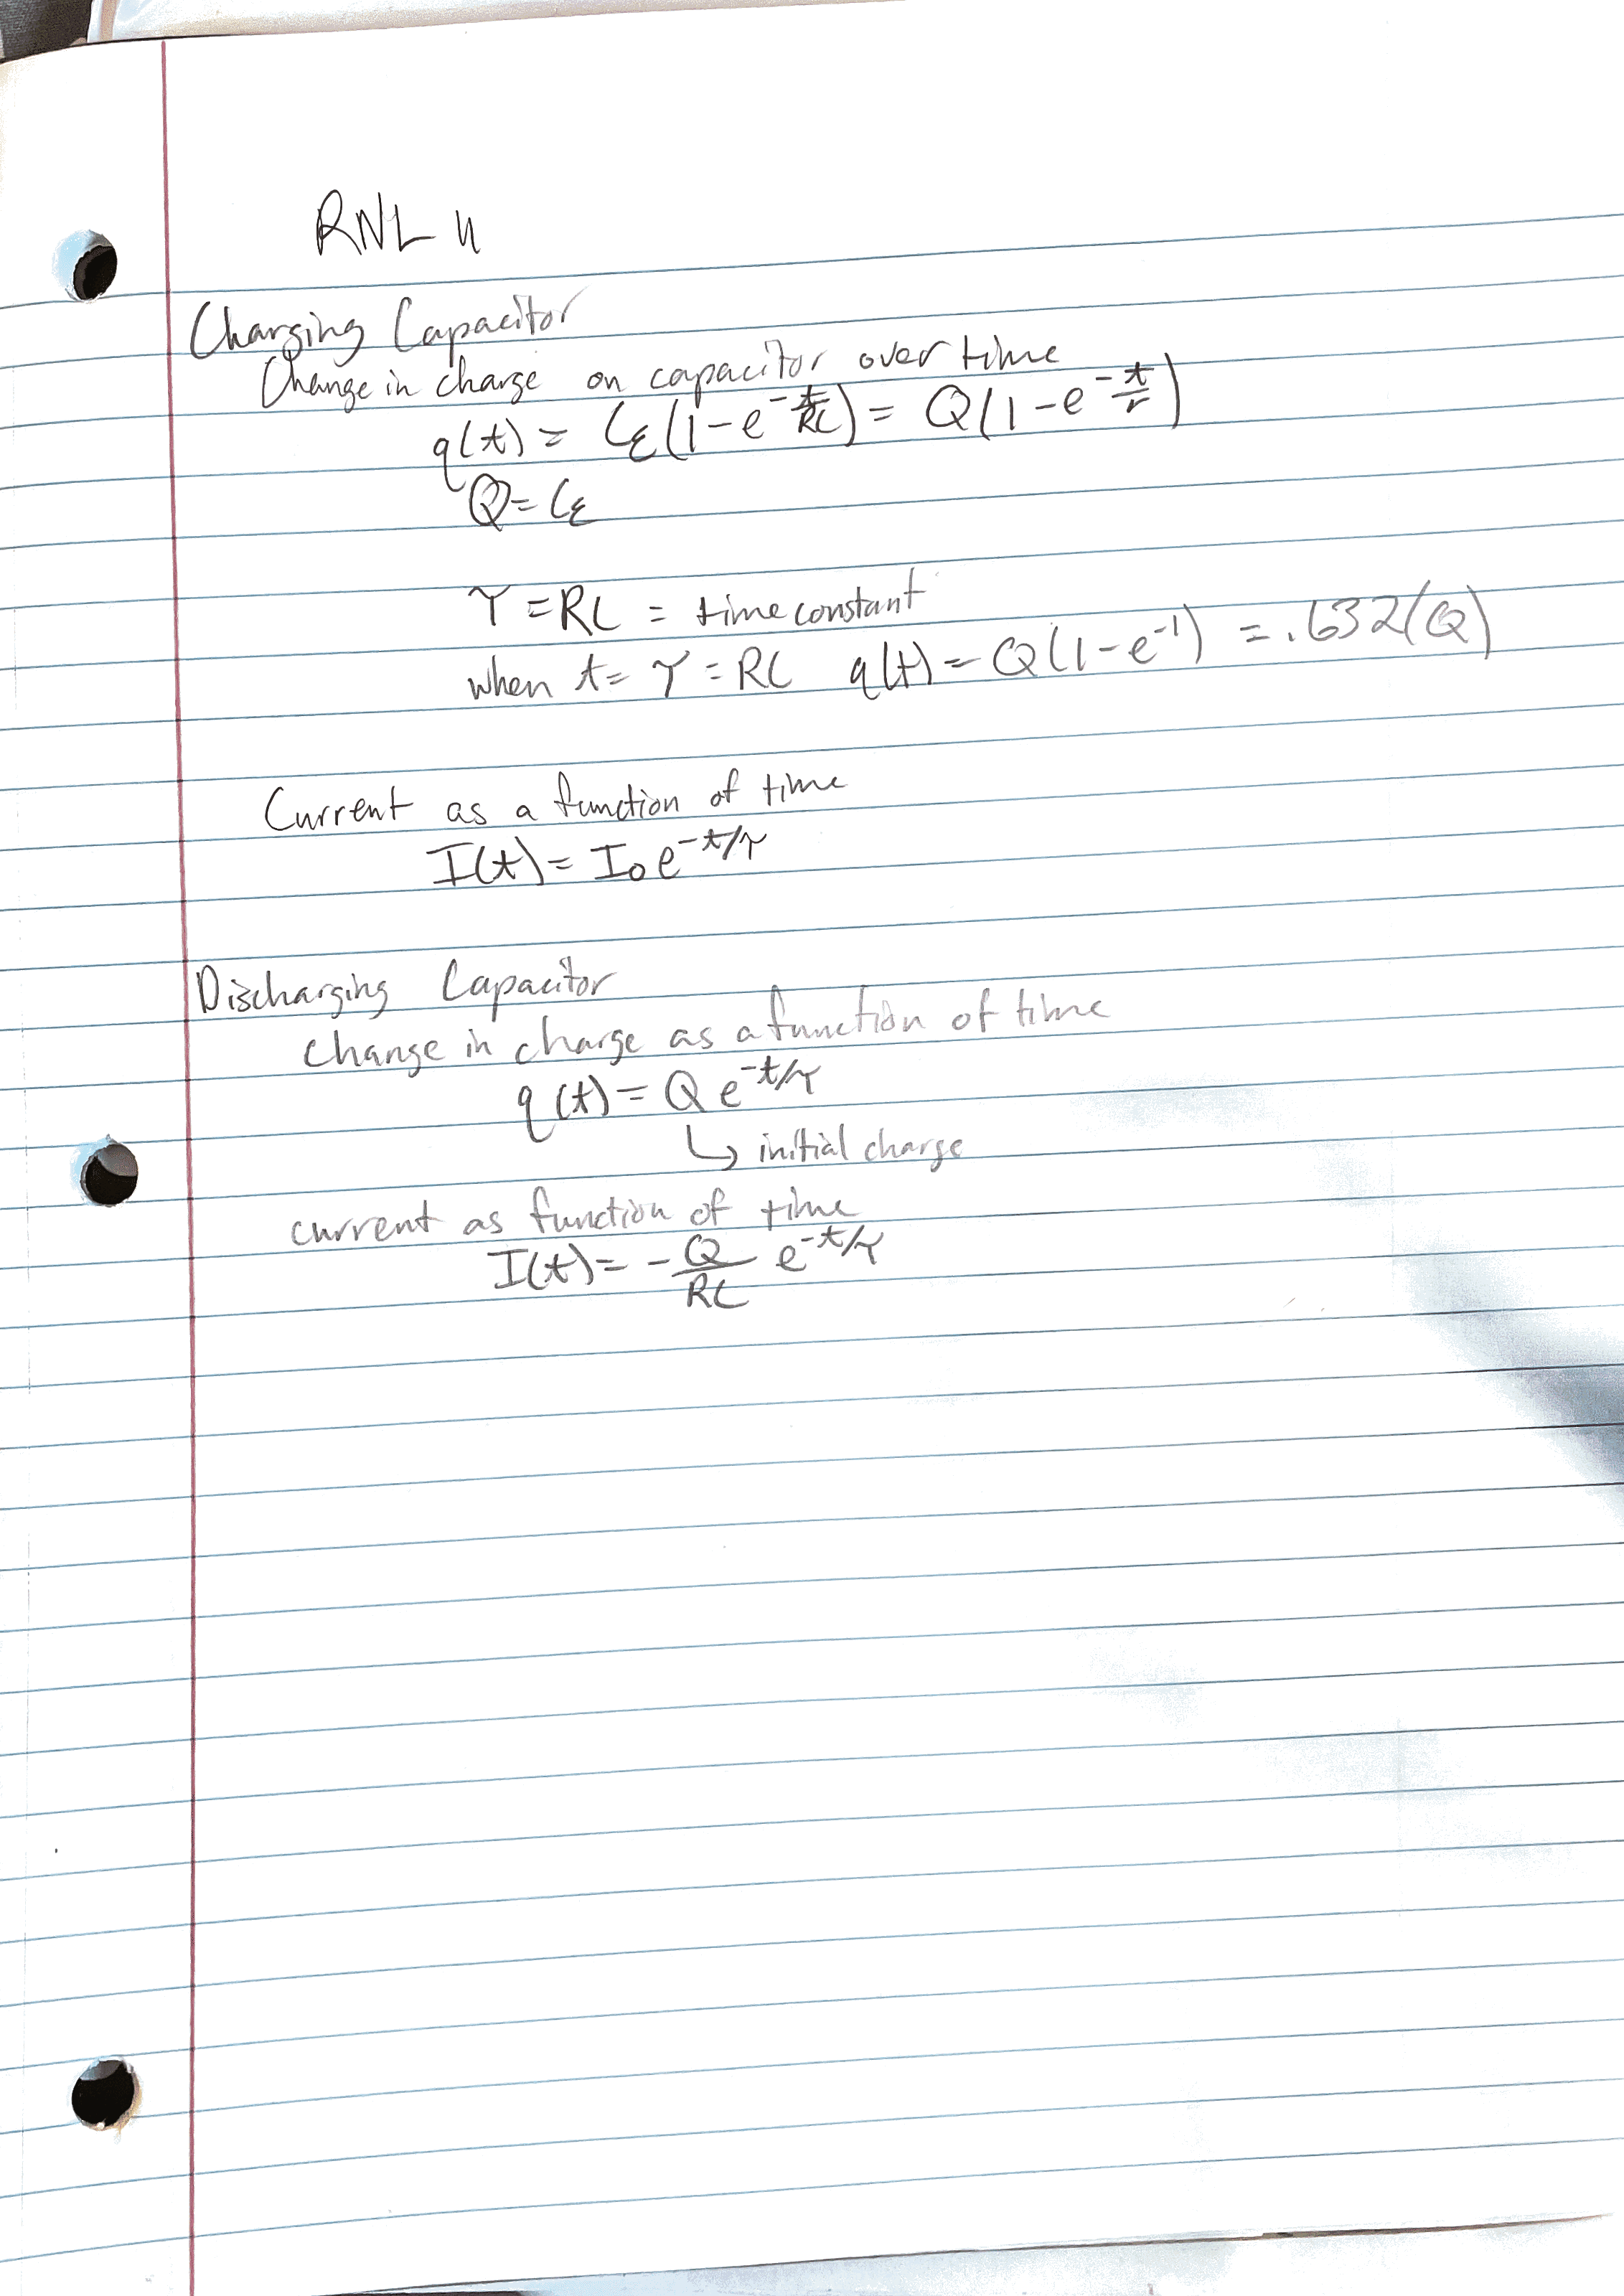 RNL 4
Charging Capacitor
Change in charge on capacitor over time
q(t) = Cε(1-e^-t/RC) = Q(1-e^-t/r)
Q = Cε
τ = RC = time constant
when t = τ = RC q(t) = Q(1-e^-1) = .632(Q)
Current as a function of time
I(t) = I₀e^-t/τ
Discharging Capacitor
change in charge as a function of time
q(t) = Q e^-t/τ
↳ initial charge
current as function of time
I(t) = -Q/RC e^-t/τ